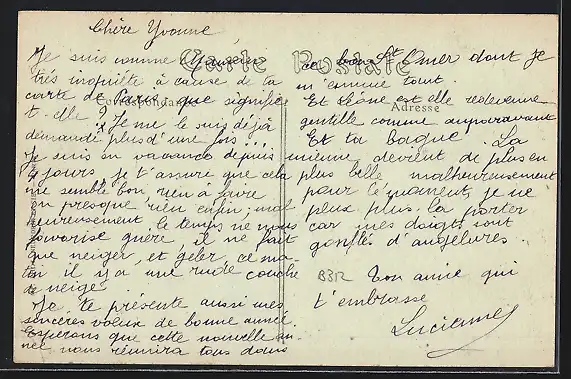 Chère Yvonne
Carte Postale
Correspondance
Adresse
Je suis comme Monsieur
très inquiète à cause de ta
carte de Paris que signifie
t-elle ? Je me le suis déjà
demandé plus d'une fois...
Je suis en vacances depuis
4 jours, je t'assure que cela
me semble bon rien à faire
ou presque rien enfin; mal
heureusement le temps ne nous
favorise guère, il ne fait
que neiger et geler, ce ma-
tin il y a une rude couche
de neige.
Je te présente aussi mes
sincères voeux de bonne année.
Espérons que cette nouvelle an-
née nous réunira tous dans
ce bon St Omer dont je
m'ennuie tant.
Et Léone est-elle redevenue
gentille comme auparavant
Et ta bague. La
mienne devient de plus en
plus belle malheureusement
pour le moment je ne
peux plus la porter
car mes doigts sont
gonflés d'angelures.
B312
Ton amie qui
t'embrasse
Lucienne